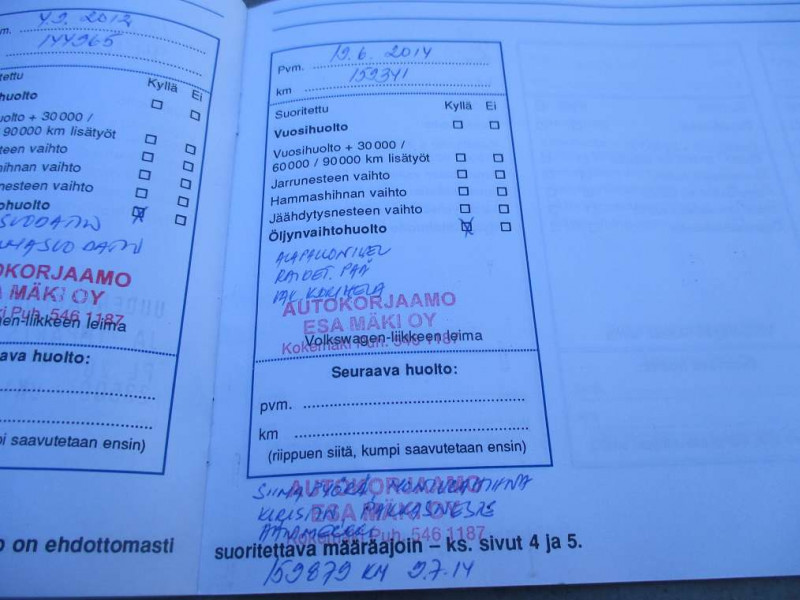 m. 4.9. 2012
144965
tettu
Kyllä Ei
huolto
uolto + 30 000 /
90 000 km lisätyöt
teen vaihto
hihnan vaihto
nesteen vaihto
tohuolto
SUODATIN
SUODATIN
OKORJAAMO
A MÄKI OY
ki Puh. 546 1187
gen-liikkeen leima
ava huolto:
pi saavutetaan ensin)
o on ehdottomasti
Pvm. 19.6. 2014
km 159341
Suoritettu Kyllä Ei
Vuosihuolto
Vuosihuolto + 30 000 /
60 000 / 90 000 km lisätyöt
Jarrunesteen vaihto
Hammashihnan vaihto
Jäähdytysnesteen vaihto
Öljynvaihtohuolto
ALAPALLONIVEL
RAIDET. PÄÄ
AUTOKORJAAMO
ESA MÄKI OY
Kokemäki Puh. 546 1187
Volkswagen-liikkeen leima
Seuraava huolto:
pvm.
km
(riippuen siitä, kumpi saavutetaan ensin)
AUTOKORJAAMO
ESA MÄKI OY
Kokemäki Puh. 546 1187
MONIURAHIHNA
PAKKASNESTE
suoritettava määräajoin – ks. sivut 4 ja 5.
159879 KM 9.7.14